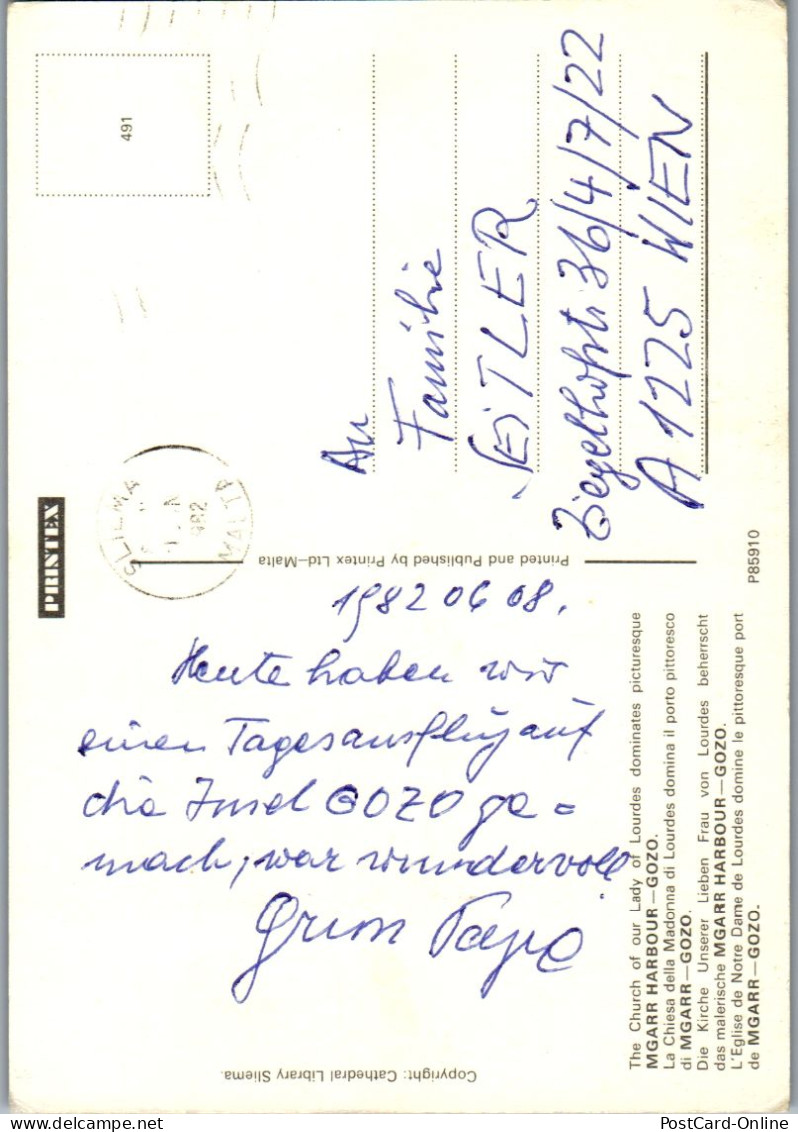 491
PRINTEX
SLIEMA
MALTA
An
Familie
SEITLER
Ziegelhofstr. 36/4/7/22
A 1225 WIEN
Printed and Published by Printex Ltd–Malta
1982 06 08.
Heute haben wir
einen Tagesausflug auf
die Insel GOZO ge=
mach, war wundervoll
The Church of our Lady of Lourdes dominates picturesque
MGARR HARBOUR—GOZO.
La Chiesa della Madonna di Lourdes domina il porto pittoresco
di MGARR—GOZO.
Die Kirche Unserer Lieben Frau von Lourdes beherrscht
das malerische MGARR HARBOUR—GOZO.
L'Eglise de Notre Dame de Lourdes domine le pittoresque port
de MGARR—GOZO.
P85910
Copyright: Cathedral Library Sliema.
PostCard-Online